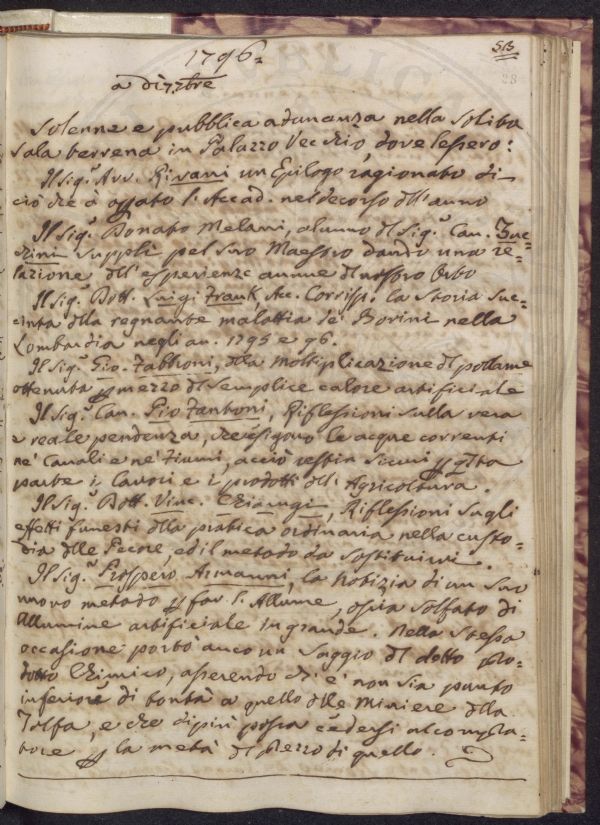 53
28
1796.
a dì 7bre
Solenne e pubblica adunanza nella solita
sala terrena in Palazzo Vecchio, dove lessero:
Il Sig.r Avv. Rivani un Epilogo ragionato di
ciò che à oprato l'Accad. nel decorso dell'anno
Il Sig.r Donato Melani, alunno del Sig.r Can. Zuc=
chini supplì pel suo Maestro dando una re=
lazione dell'esperienze annue del nostro Orto
Il Sig.r Dott. Luigi Frank, Acc. Corrisp. la storia suc=
cinta della regnante malattia de' Bovini nella
Lombardia negli an. 1795 e 96.
Il Sig.r Gio. Fabbroni, della moltiplicazione del pollame
ottenuta p mezzo del semplice calore artificiale
Il Sig.r Can. Pio Fantoni, Riflessioni sulla vera
e reale pendenza, ch'esigono le acque correnti
ne' Canali e ne' Fiumi, acciò restin sicuri p qta
parte i lavori e i prodotti dell'Agricoltura.
Il Sig.r Dott. Vinc. Chiarugi, Riflessioni sugli
effetti funesti della pratica ordinaria nella custo=
dia delle Pecore, ed il metodo da sostituirvi.
Il Sig.r Prospero Armanni, la Notizia di un suo
nuovo metodo p far l'Allume, ossia solfato di
Allumine artificiale in grande. Nella stessa
occasione portò anco un saggio del detto Pro=
dotto Chimico, asserendo ch'e' non sia punto
inferiore di bontà a quello delle Miniere della
Tolfa, e che di più possa cedersi al compra=
tore p la metà del prezzo di quello.